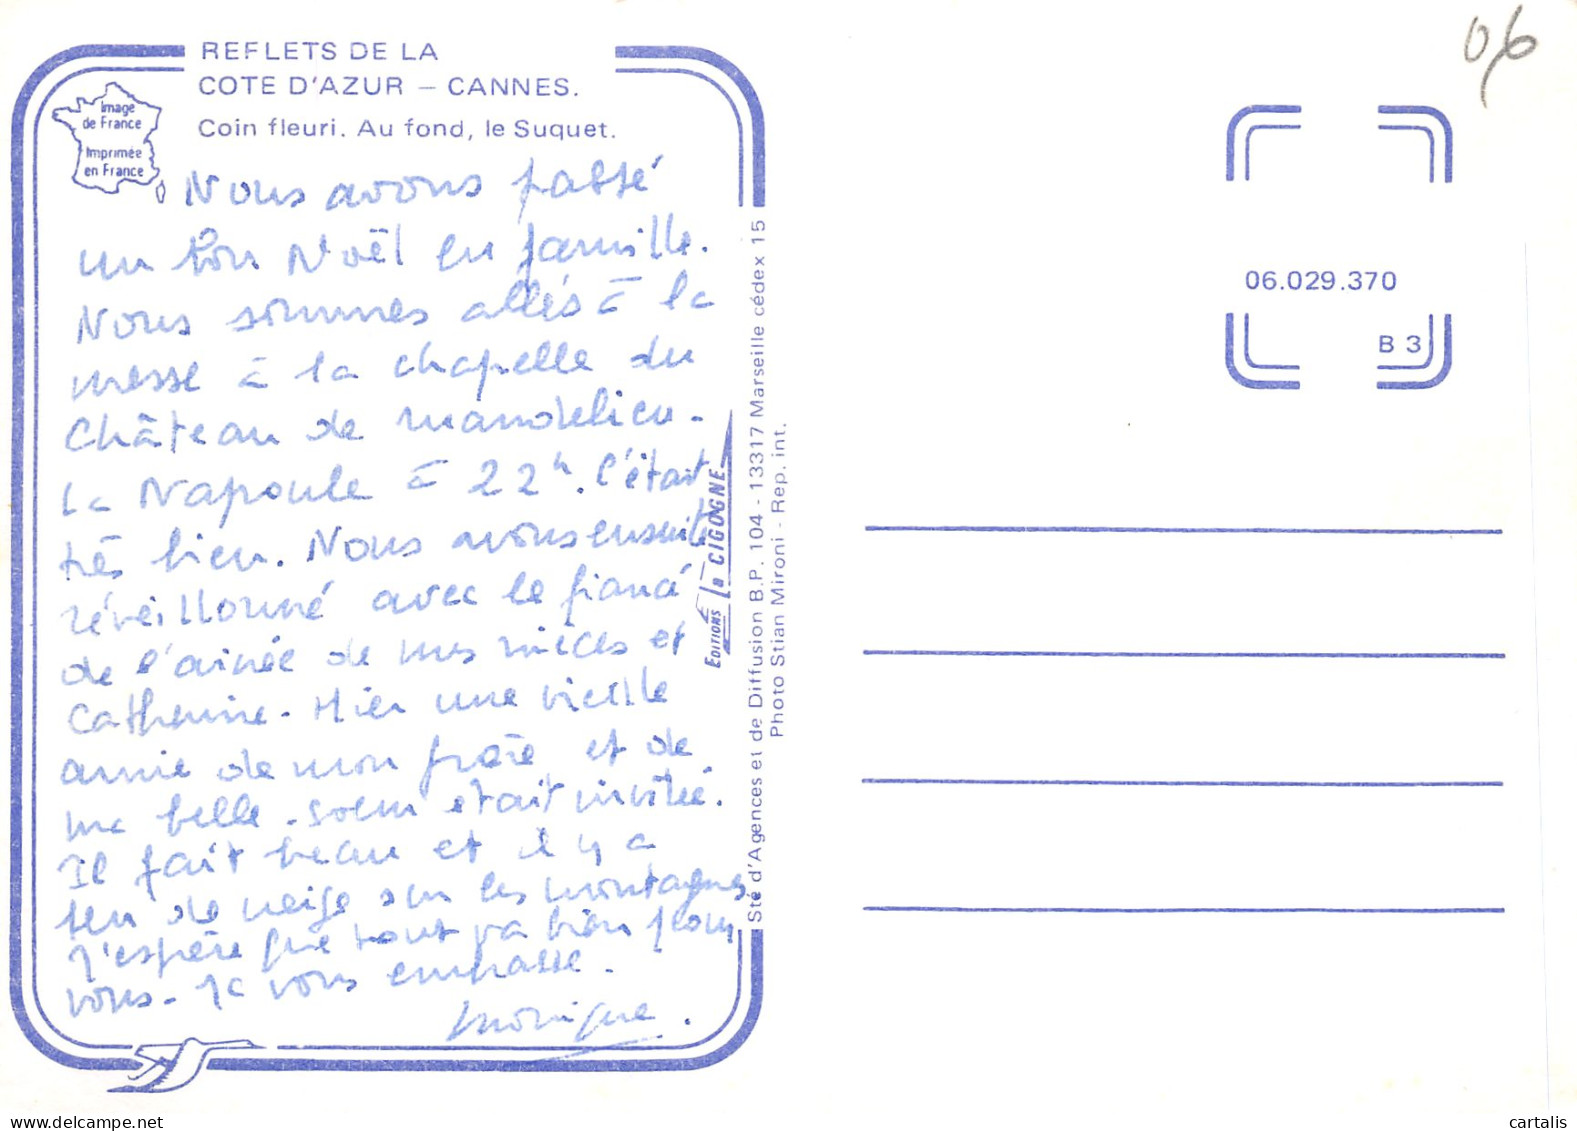 REFLETS DE LA
COTE D'AZUR – CANNES.
Coin fleuri. Au fond, le Suquet.
Image
de France
Imprimée
en France
Nous avons passé
un bon Noël en famille.
Nous sommes allés à la
messe à la chapelle du
Château de Mandelieu-
la Napoule à 22h. C'était
très bien. Nous avons ensuite
réveillonné avec le fiancé
de l'ainée de mes nièces et
Catherine. Hier une vieille
amie de mon frère et de
ma belle-soeur était invitée.
Il fait beau et il y a
peu de neige sur les montagnes
J'espère que tout va bien pour
vous. Je vous embrasse.
Monique.
EDITIONS La CIGOGNE
Sté d'Agences et de Diffusion B.P. 104 - 13317 Marseille cédex 15
Photo Stian Mironi - Rep. int.
06
06.029.370
B 3
cartalis